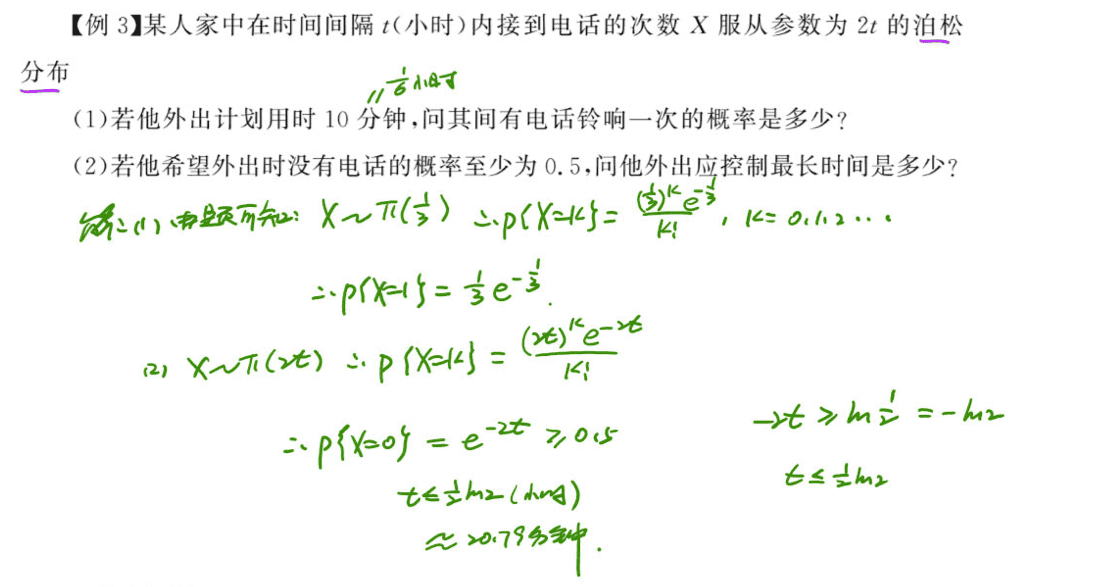 【例 3】某人家中在时间间隔 t(小时)内接到电话的次数 X 服从参数为 2t 的泊松
分布
= 1/6 小时
(1)若他外出计划用时 10 分钟,问其间有电话铃响一次的概率是多少?
(2)若他希望外出时没有电话的概率至少为 0.5,问他外出应控制最长时间是多少?
解:(1) 由题可知: X~π(1/3) ∴P{X=K}= (1/3)^K e^(-1/3) / K! , K=0,1,2...
∴P{X=1}= 1/3 e^(-1/3).
(2) X~π(2t) ∴P{X=K}= (2t)^K e^(-2t) / K!
∴P{X=0} = e^(-2t) ≥0.5
t≤1/2 ln2 (小时)
≈20.79分钟.
-2t ≥ ln 1/2 = -ln2
t ≤ 1/2 ln2